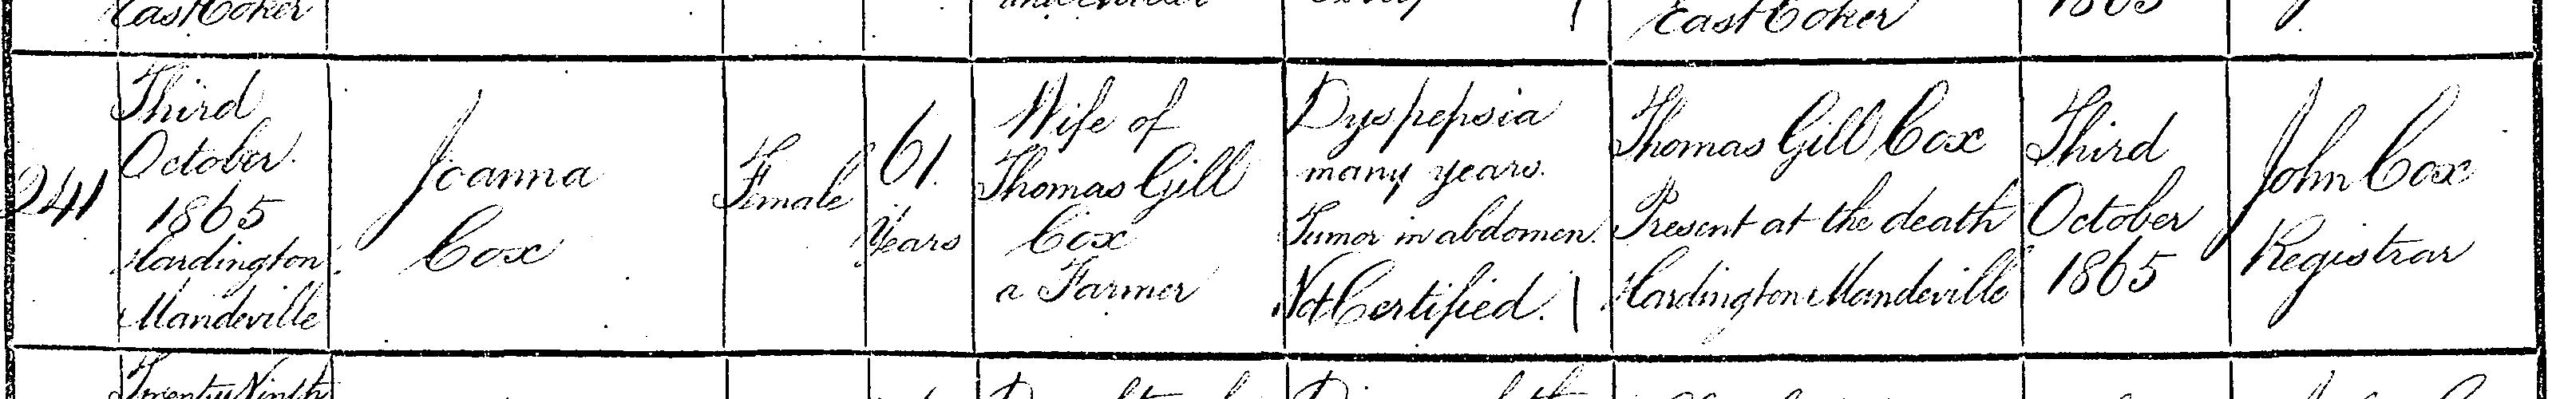 East Coker
East Coker
1865
241
Third
October
1865
Hardington
Mandeville
Joanna
Cox
Female
61.
Years
Wife of
Thomas Gill
Cox
a Farmer
Dyspepsia
many years.
Tumor in abdomen.
Not Certified.
Thomas Gill Cox
Present at the death
Hardington Mandeville
Third
October
1865
John Cox
Registrar
Twenty Ninth